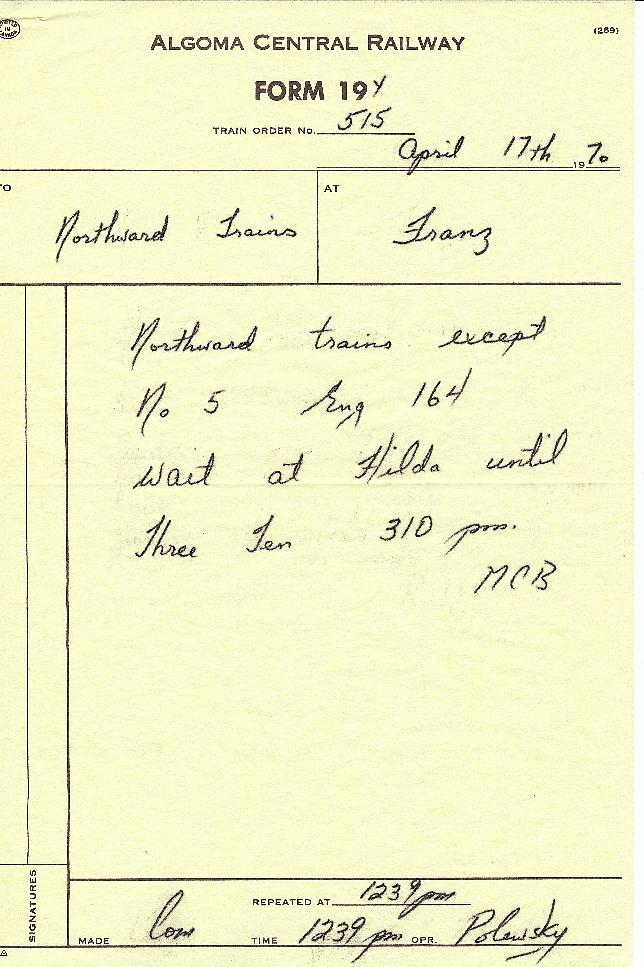 PRINTED IN CANADA
(269)
ALGOMA CENTRAL RAILWAY
FORM 19Y
TRAIN ORDER No. 515
April 17th 1970
TO
AT
Northward Trains
Franz
Northward trains except
No 5 Eng 164
wait at Hilda until
Three Ten 310 pm.
MCB
SIGNATURES
REPEATED AT 1239 pm
MADE Com TIME 1239 pm OPR. Polewsky